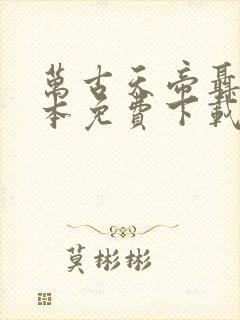 萬古天帝聶
本免費下載
莫彬彬